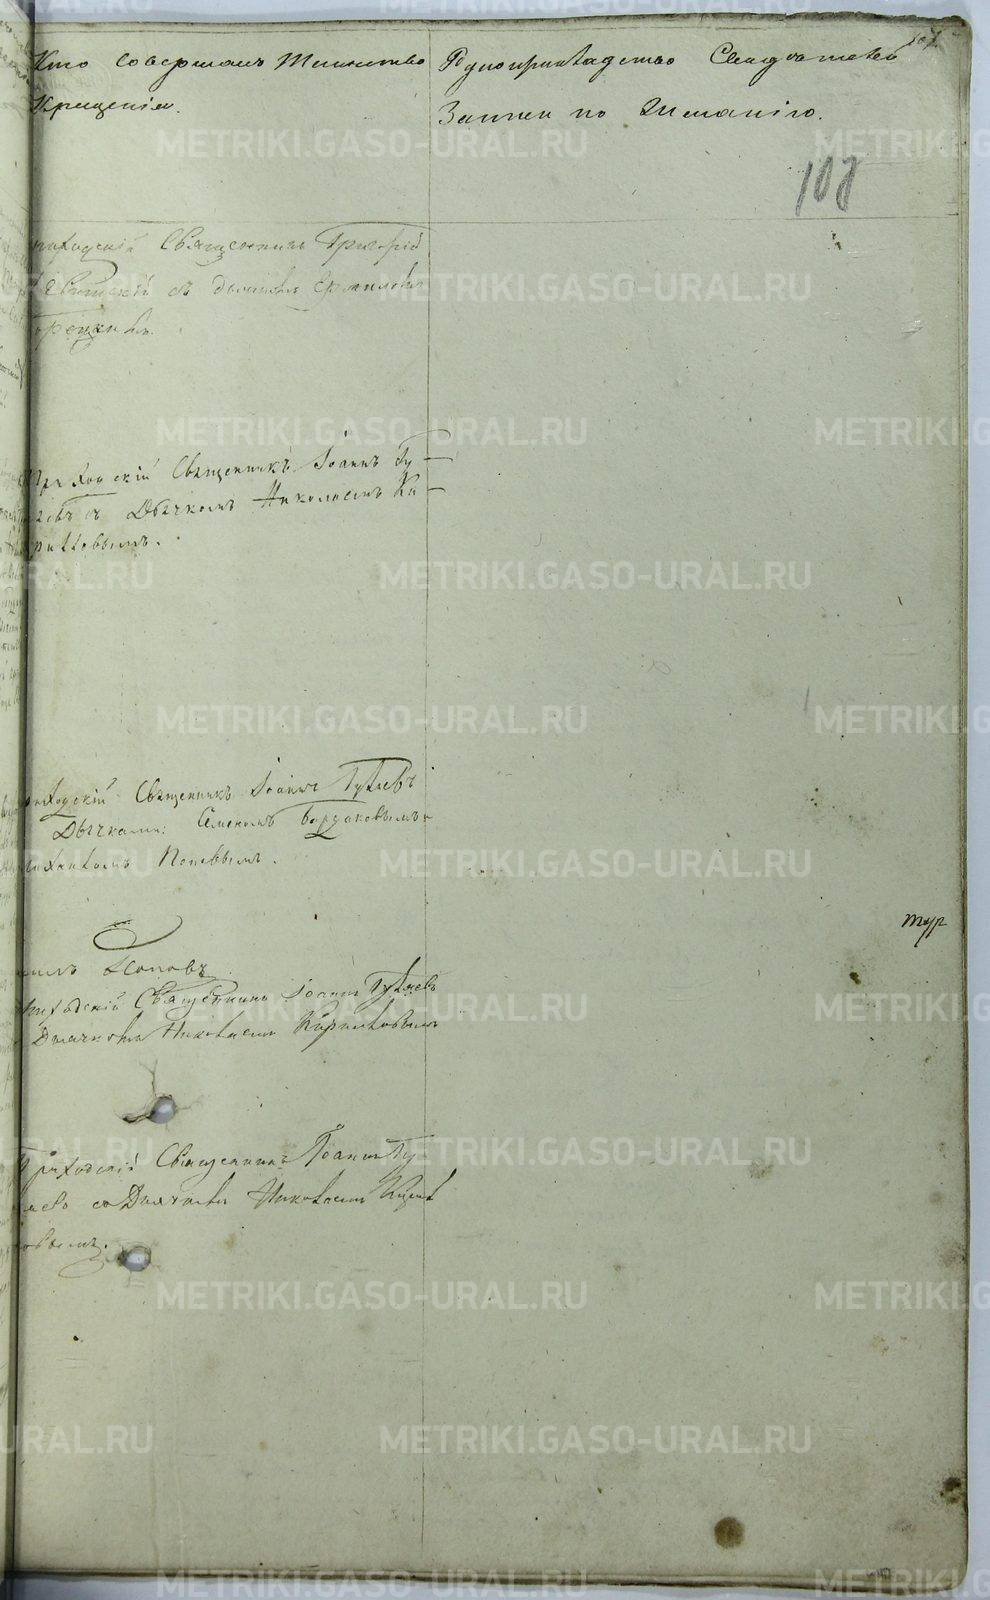 Кто Совершалъ Таинство
Крещенія.
Рукоприкладство Свидѣтелей
Записи по Желанію.
107
108
Приходскій Священникъ Григорій
съ дьячкомъ
Приходскій Священникъ Іоаннъ Гу-
ляевъ съ Дьячкомъ Николаемъ Ки-
рилловымъ.
Приходскій Священникъ Іоаннъ Гуляевъ
Дьячками: Семеномъ Бардаковымъ и
Поповымъ.
тур
Поповъ
Приходскій Священникъ Іоаннъ Гуляевъ
Дьячкомъ Николаемъ Кириловымъ
Приходскій Священникъ Іоаннъ Гу
ляевъ со Дьячкомъ Николаемъ Кирил
овымъ.
METRIKI.GASO-URAL.RU